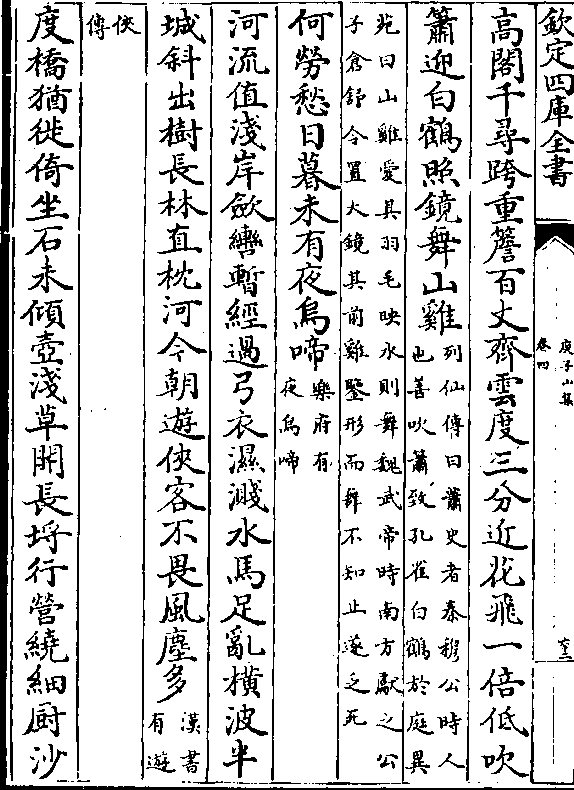 欽定四庫全書
庾子山集
卷四
六二
高閣千尋跨重簷百丈齊雲度三分近花飛一倍低吹
簫迎白鶴照鏡舞山雞列仙傳曰蕭史者秦穆公時人
也善吹簫致孔雀白鶴於庭異
苑曰山雞愛其羽毛映水則舞魏武帝時南方獻之公
子倉舒令置大鏡其前雞鑒形而舞不知止遂乏死
何勞愁日暮未有夜烏啼樂府有
夜烏啼
河流值淺岸斂轡暫經過弓衣濕濺水馬足亂橫波半
城斜出樹長林直枕河今朝遊俠客不畏風塵多漢書
有遊
俠
傳
度橋猶徙倚坐石未傾壺淺草開長埒行營繞細厨沙